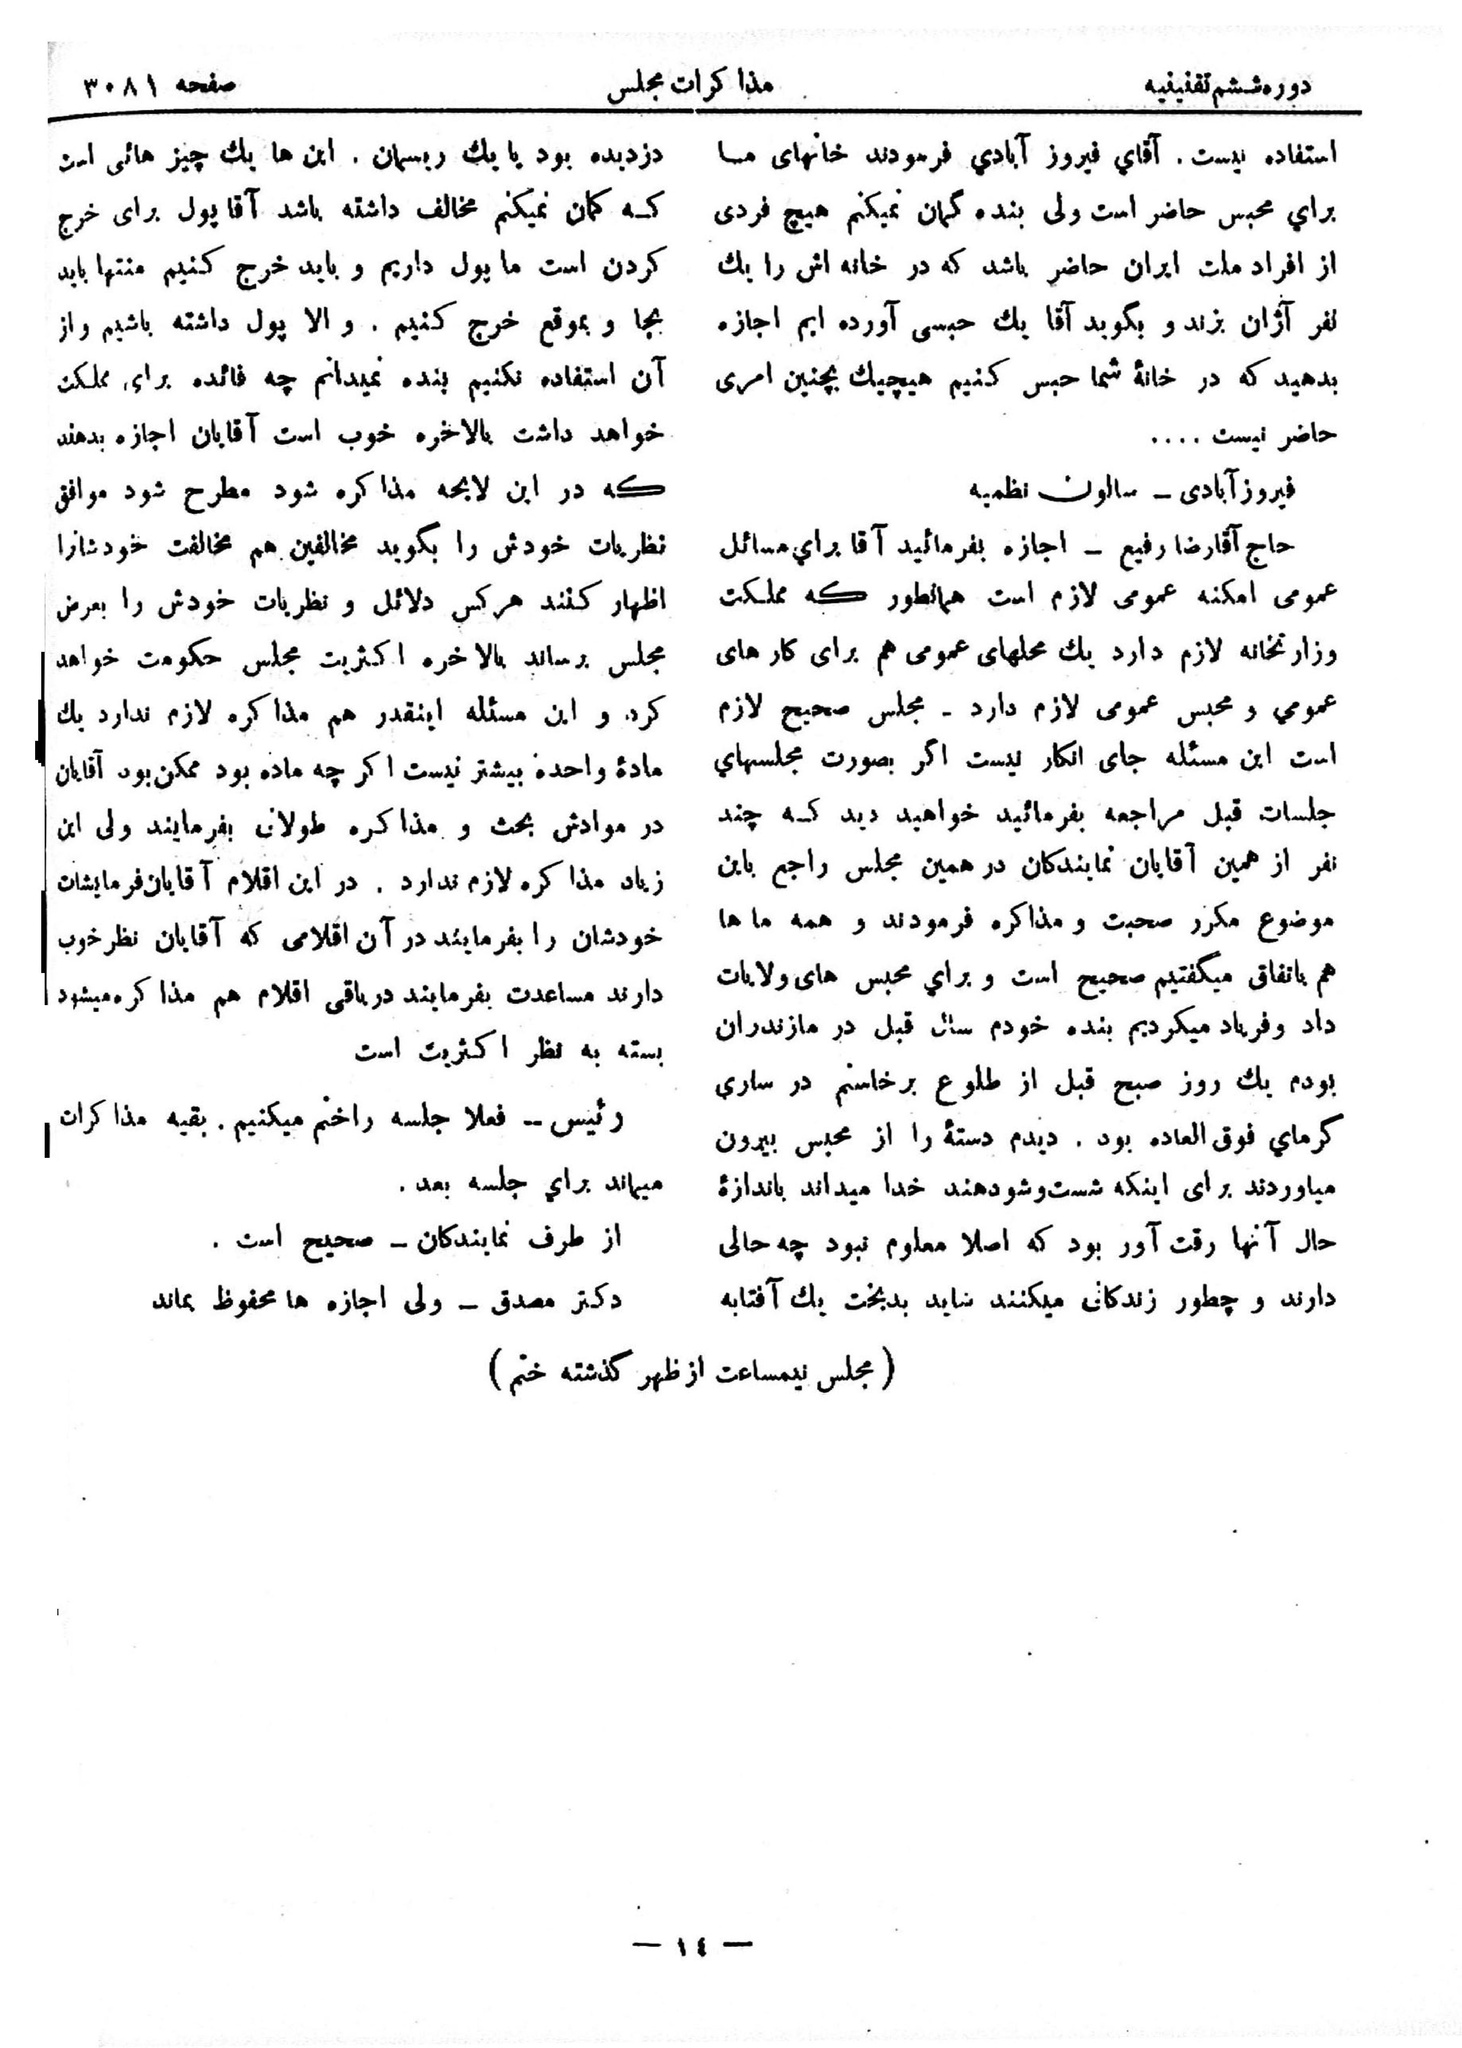 دوره ششم تقنینیه
مذاکرات مجلس
صفحه ۳۰۸۱
استفاده نیست . آقای فیروز آبادي فرمودند خانهای ما
براي محبس حاضر است ولی بنده گمان نمیکنم هیچ فردی
از افراد ملت ایران حاضر باشد که در خانه اش را یك
نفر آژان بزند و بگوید آقا یك حبسی آورده ایم اجازه
بدهید که در خانهٔ شما حبس کنیم هیچیك بچنین امری
حاضر نیست ....
فیروزآبادی ــ سالون نظمیه
حاج آقارضا رفیع ــ اجازه بفرمائید آقا براي مسائل
عمومی امکنه عمومی لازم است همانطور که مملکت
وزارتخانه لازم دارد یك محلهای عمومی هم برای کارهای
عمومي و محبس عمومی لازم دارد ـ مجلس صحیح لازم
است این مسئله جای انکار نیست اگر بصورت مجلسهاي
جلسات قبل مراجعه بفرمائید خواهید دید که چند
نفر از همین آقایان نمایندکان در همین مجلس راجع باین
موضوع مکرر صحبت و مذاکره فرمودند و همه ماها
هم باتفاق میگفتیم صحیح است و براي محبس های ولایات
داد وفریاد میکردیم بنده خودم سال قبل در مازندران
بودم یك روز صبح قبل از طلوع برخاستم در ساری
گرماي فوق العاده بود . دیدم دستهٔ را از محبس بیرون
میاوردند برای اینکه شست وشودهند خدا میداند باندازهٔ
حال آنها رقت آور بود که اصلا معلوم نبود چه حالی
دارند و چطور زندکانی میکنند شاید بدبخت یك آفتابه
دزدیده بود یا یك ریسمان . این ها یك چیز هائی است
که کمان نمیکنم مخالف داشته باشد آقا پول برای خرج
کردن است ما پول داریم و باید خرج کنیم منتها باید
بجا و بموقع خرج کنیم . و الا پول داشته باشیم واز
آن استفاده نکنیم بنده نمیدانم چه فائده برای مملکت
خواهد داشت بالاخره خوب است آقایان اجازه بدهند
که در این لایحه مذاکره شود مطرح شود موافق
نظریات خودش را بگوید مخالفین هم مخالفت خودشانرا
اظهار کنند هرکس دلائل و نظریات خودش را بعرض
مجلس برساند بالاخره اکثریت مجلس حکومت خواهد
کرد و این مسئله اینقدر هم مذاکره لازم ندارد یك
مادهٔ واحده بیشتر نیست اکر چه ماده بود ممکن بود آقایان
در موادش بحث و مذاکره طولانی بفرمایند ولی این
زیاد مذاکره لازم ندارد . در این اقلام آقایان فرمایشات
خودشان را بفرمایند در آن اقلامی که آقایان نظر خوب
دارند مساعدت بفرمایند در باقی اقلام هم مذاکره میشود
بسته به نظر اکثریت است
رئیس ــ فعلا جلسه را ختم میکنیم . بقیه مذاکرات
میماند براي جلسه بعد .
از طرف نمایندکان ــ صحیح است .
دکتر مصدق ــ ولی اجازه ها محفوظ بماند
( مجلس نیمساعت از ظهر گذشته ختم )
— ١٤ —